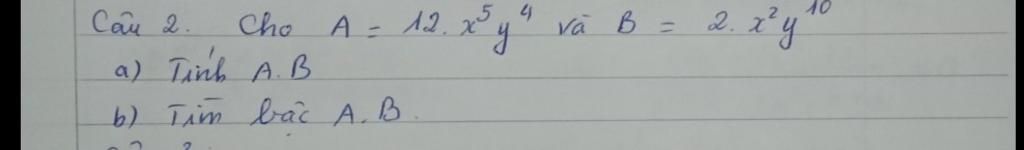 Câu 2. Cho A = 12. x⁵y⁴ và B = 2. x²y¹⁰
a) Tính A.B
b) Tìm bậc A.B.